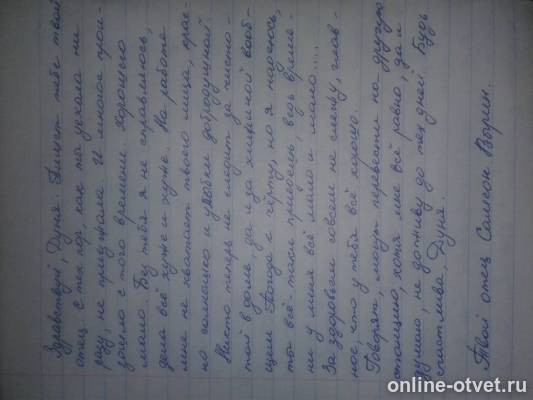 Здравствуй, Дуня. Пишет тебе твой
отец. С тех пор как ты уехала ни
разу не приезжала. И многое прои-
зошло с того времени. Хорошего
мало. Без тебя я не справляюсь,
дела всё хуже и хуже. На работе
мне не хватает твоего лица, крас-
но солнышко и улыбки добродушной.
Никто теперь не следит за чисто-
той в доме, да и за хижиной вооб-
щем. Погода к чёрту, но я надеюсь,
ты всё-таки приедешь, ведь време-
ни у меня всё мало и мало....
За здоровьем совсем не слежу, глав-
ное, что у тебя всё хорошо.
Говорят, могут перевести на другую
станцию, хотя мне всё равно, да и
думаю, не доживу до тех дней. Будь
счастлива, Дуня.
Твой отец Самсон Вырин.
online-otvet.ru